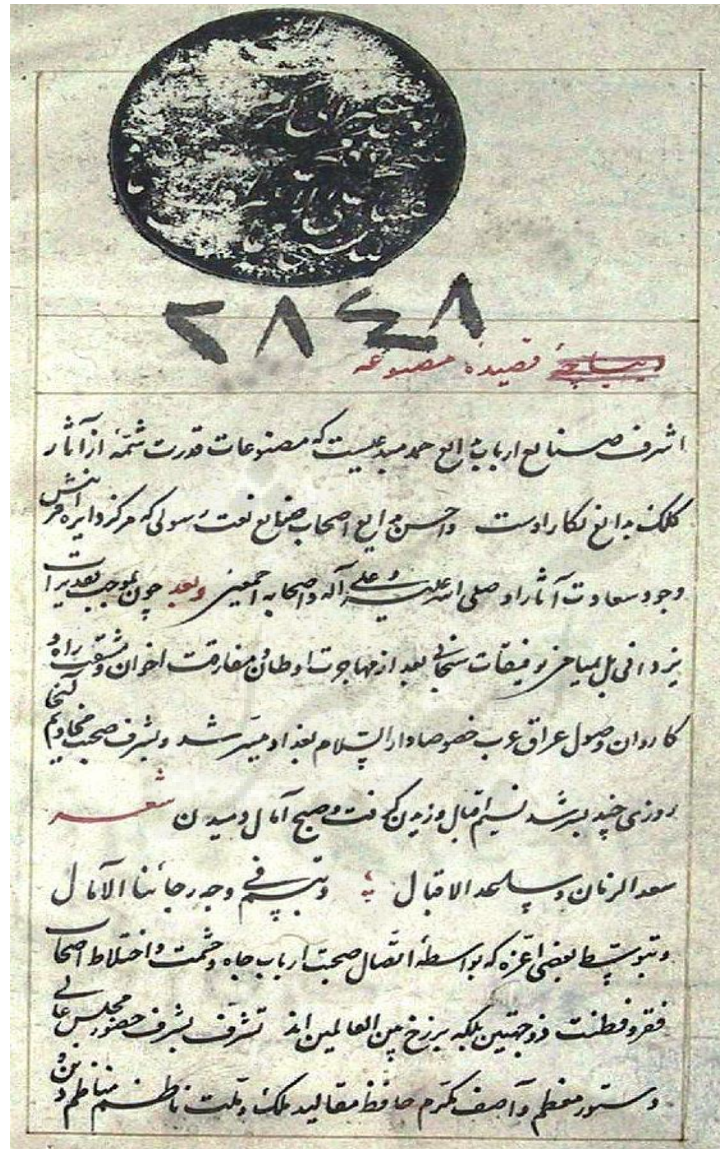 ۲۸۴۸
دیباچهٔ قصیدهٔ مصنوعه
اشرف صنایع ارباب بدایع حمد مبدعیست که مصنوعات قدرت شمّهٔ از آثار
کلک بدایع نگار اوست واحسن بدایع اصحاب صنایع نعت رسولی که مرکز دایره آفرینش
وجود سعادت آثار او صلی الله علیه وعلی آله واصحابه اجمعین وبعد چون بموجب تقدیرات
یزدانی بل بمیامن توفیقات سبحانی بعد از مهاجرت اوطان ومفارقت اخوان ومشقت راه و
کاروان وصول عراق عرب خصوصا دار السلام بغداد میسّر شد وبشرف صحبت مخادیم آنجا
روزی چند بسر شد نسیم اقبال وزیدن گرفت وصبح آمال دمیدن شعر
سعد الزمان وساعد الاقبال وتبسم فی وجه رجائنا الآمال
وبتوسط بعضی اعزه که بواسطهٔ اتصال صحبت ارباب جاه وحشمت واختلاط اصحاب
فقر وفطنت ذو جهتین بلکه برزخ بین العالمین اند تشرف بشرف حضور مجلس عالی
دستور معظم وآصف مکرم حافظ مقالید ملک وملت ناظم مناظم دین و